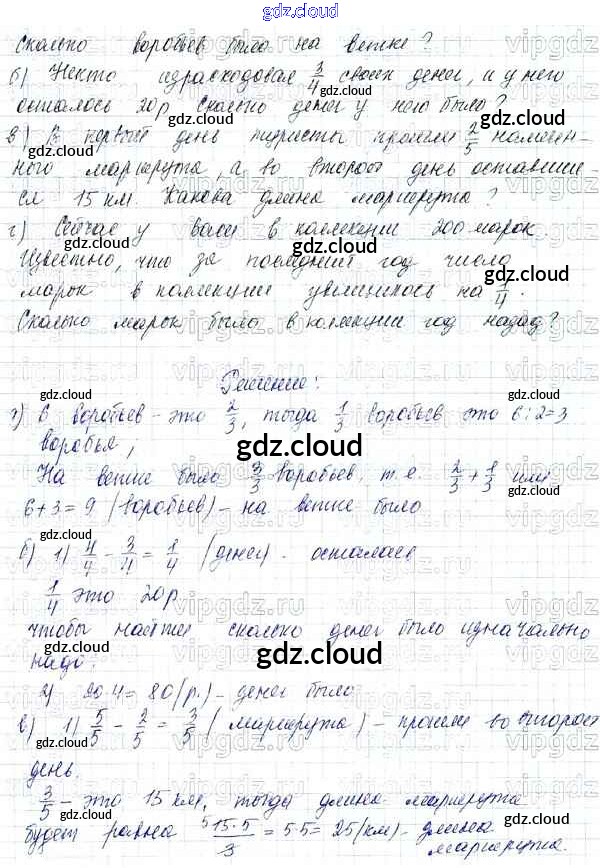 gdz.cloud
сколько воробьев было на ветке?
б) Некто израсходовал 3/4 своих денег, и у него
осталось 20р. Сколько денег у него было?
в) В первый день туристы прошли 2/5 намечен-
ного маршрута, а во второй день оставшие-
ся 15 км. Какова длина маршрута?
г) Сейчас у Васи в коллекции 200 марок.
Известно, что за последний год число
марок в коллекции увеличилось на 1/4.
Сколько марок было в коллекции год назад?
Решение:
а) 6 воробьев - это 2/3, тогда 1/3 воробьев это 6:2=3
воробья;
На ветке было 3/3 воробьев, т.е. 2/3 + 1/3 или
6+3=9 (воробьев) - на ветке было
б) 1) 4/4 - 3/4 = 1/4 (денег) - осталось
1/4 это 20р
чтобы найти сколько денег было изначально
надо:
2) 20·4=80(р.) - денег было
в) 1) 5/5 - 2/5 = 3/5 (маршрута) - прошли во второй
день.
3/5 - это 15 км, тогда длина маршрута
будет равна 15·5/3 = 5·5 = 25(км) - длина
маршрута.